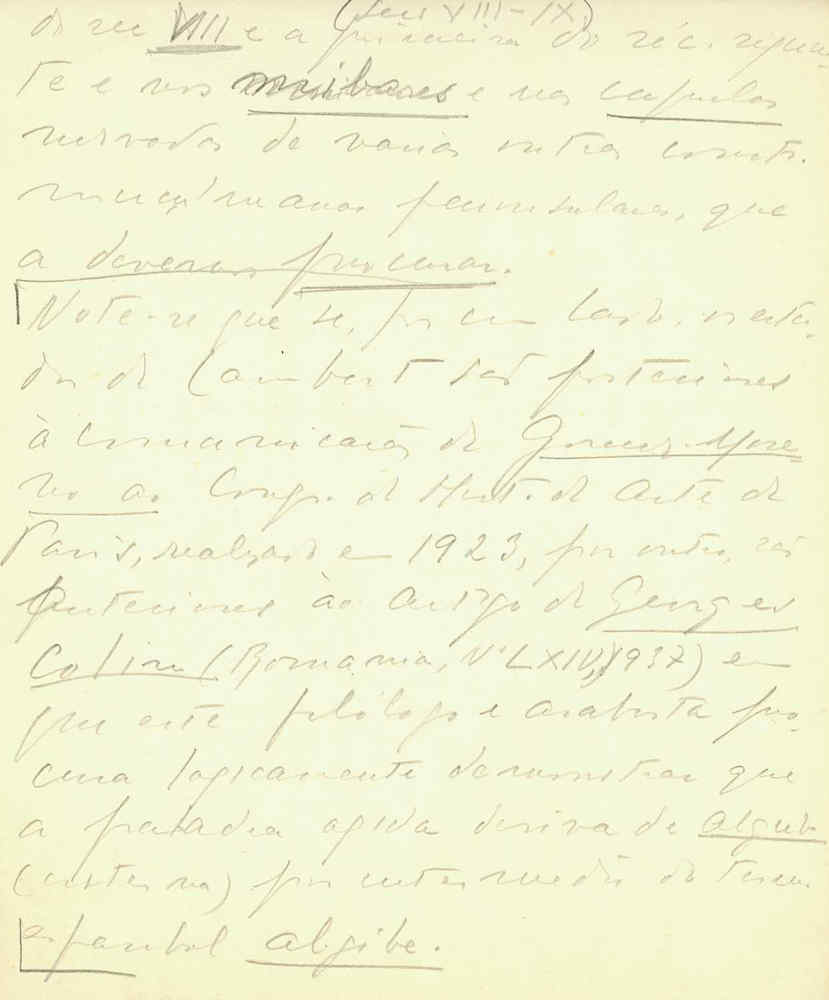 (sec VIII-IX)
do sec VIII e a primeira do séc. seguin-
te e nos mirhabes e nas cupulas
nervadas de varias outras constr.
muçulmanas peninsulares, que
a deveram procurar.
Note-se que se, por um lado, os estu-
dos de Lambert são posteriores
à comunicação de Gomez-More-
no ao Congr. de Hist. de Arte de
Paris, realizado em 1923, por outro, são
anteriores ao artigo de Georges
Colin (Romania, Nº LXIII, 1937) em
que este filólogo e arabista pro-
cura logicamente demonstrar que
a palavra ogiva deriva de
(cisterna) por intermedio do termo
espanhol algibe.